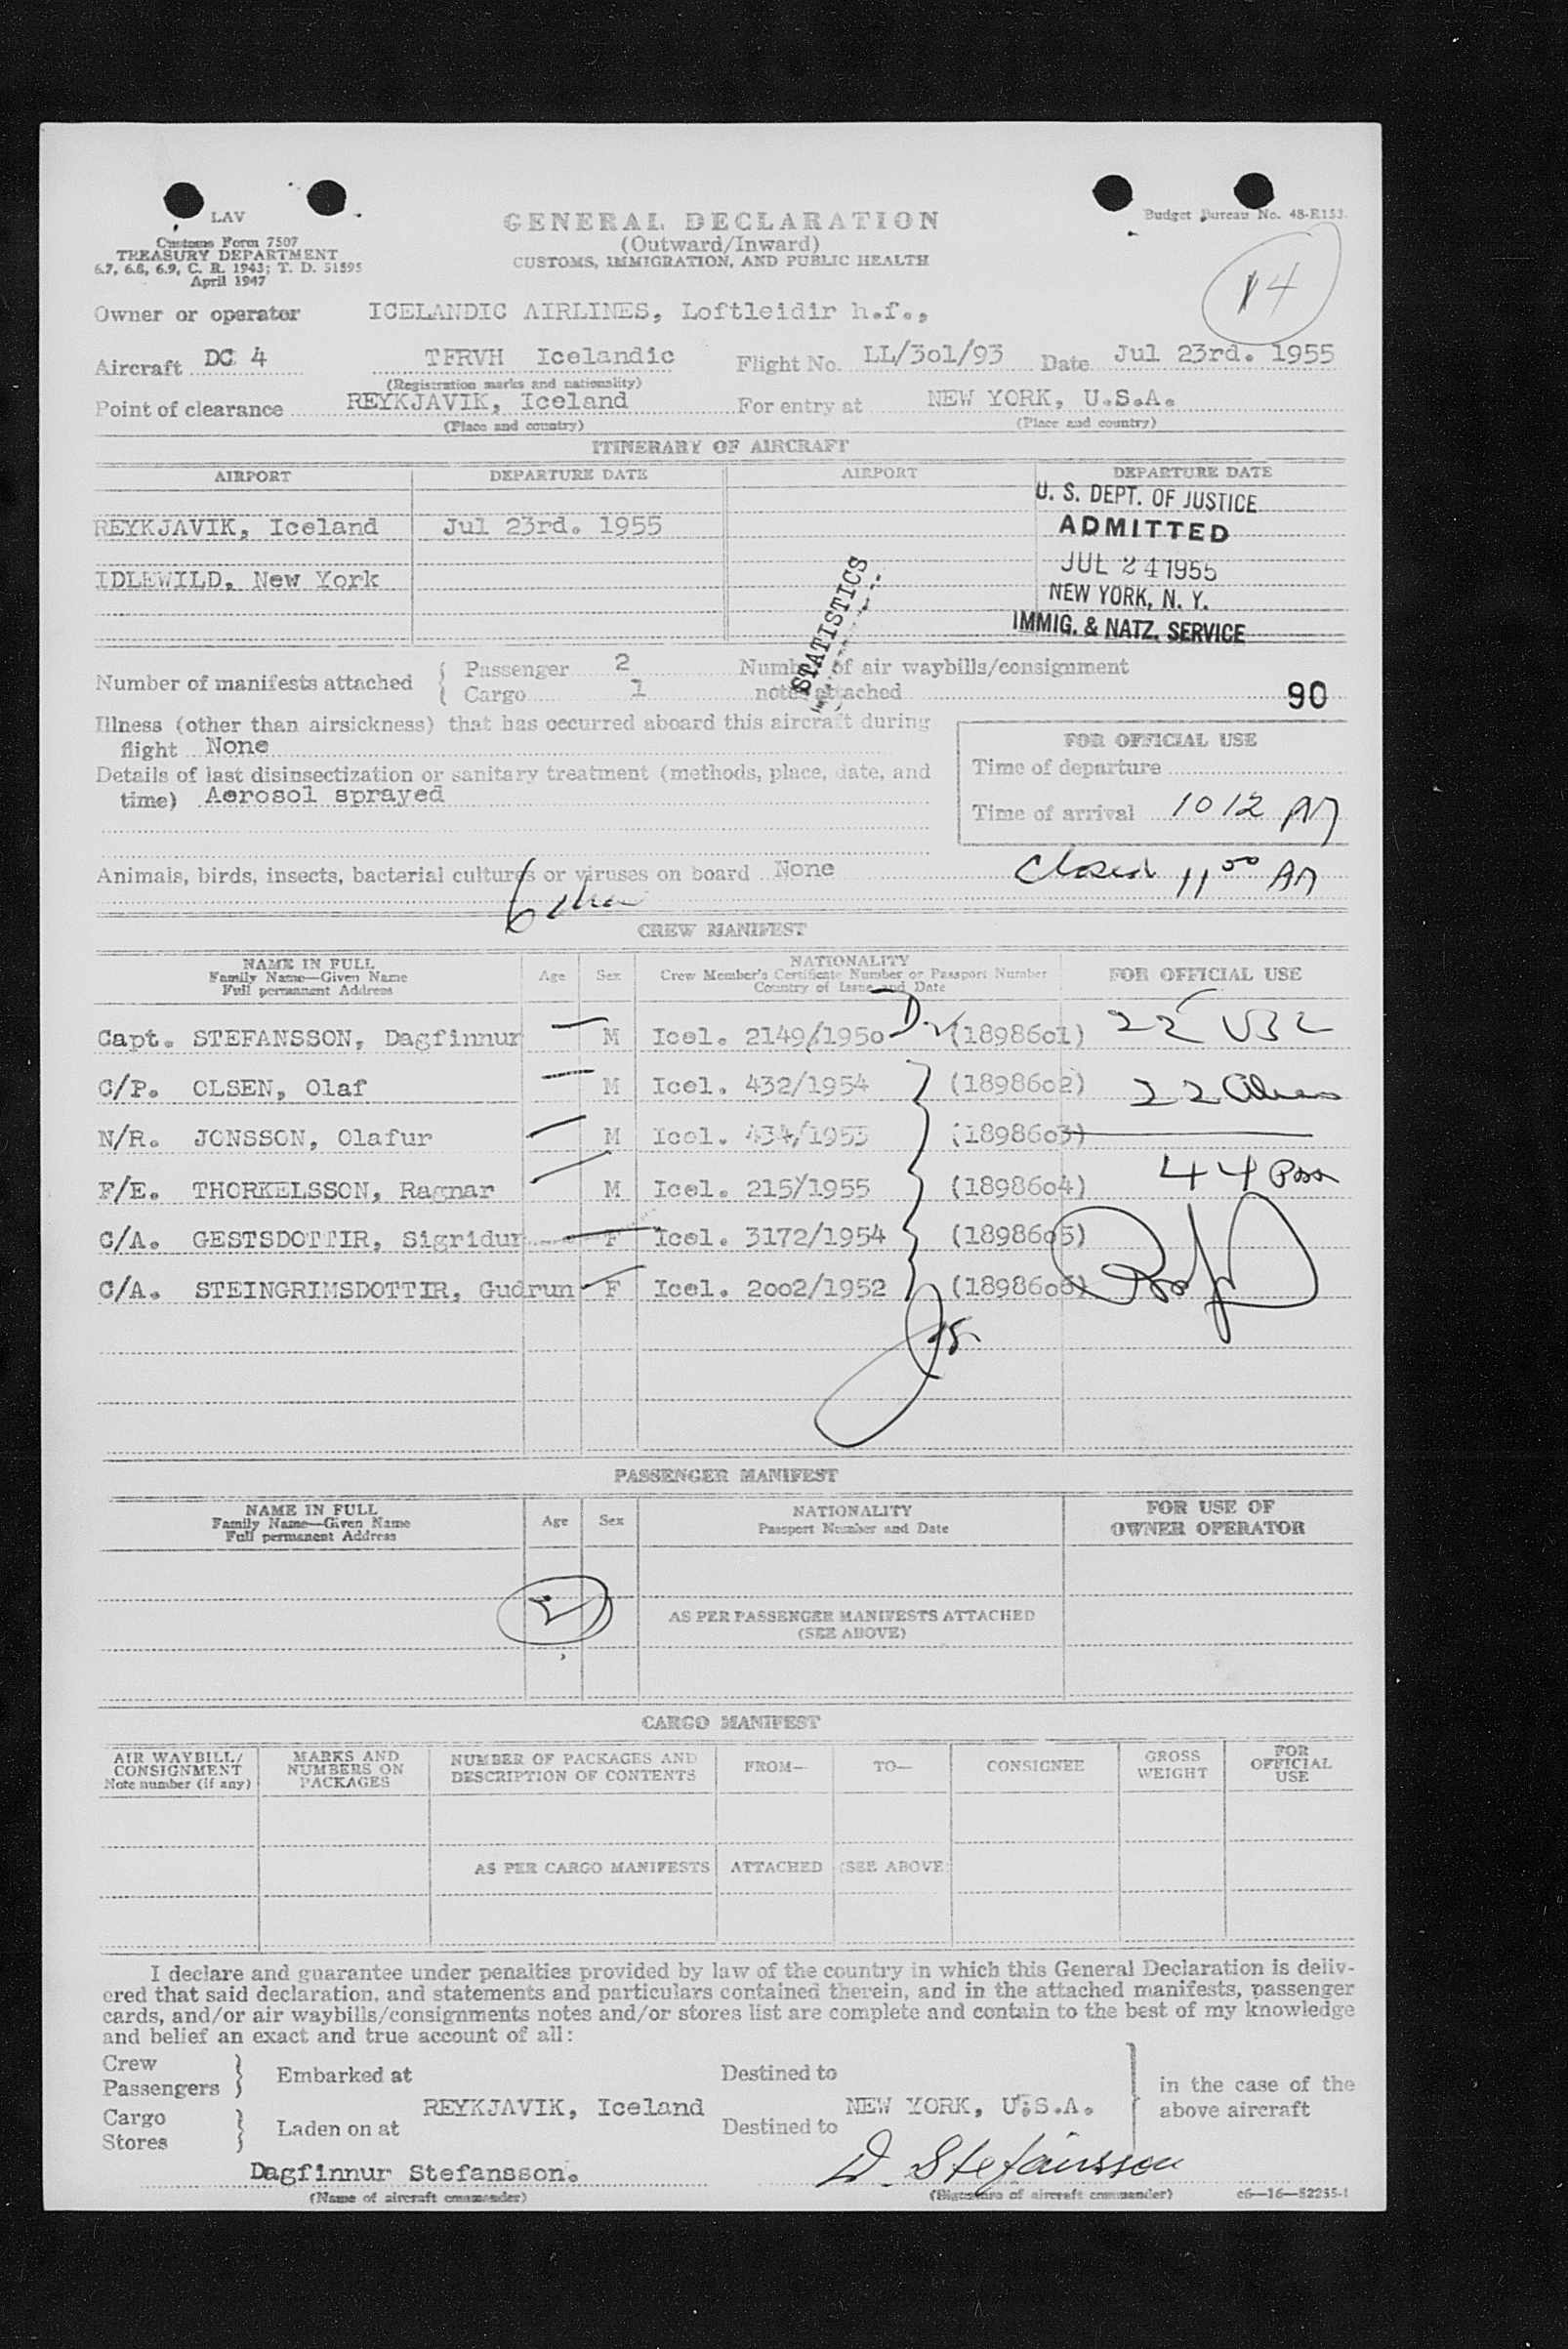 LAV
Customs Form 7507
TREASURY DEPARTMENT
6.7, 6.8, 6.9, C. R. 1943; T. D. 51595
April 1947
GENERAL DECLARATION
(Outward/Inward)
CUSTOMS, IMMIGRATION, AND PUBLIC HEALTH
Budget Bureau No. 48-R153.
14
Owner or operator ICELANDIC AIRLINES, Loftleidir h.f.,
Aircraft DC 4 TFRVH Icelandic Flight No. LL/3o1/93 Date Jul 23rd. 1955
(Registration marks and nationality)
Point of clearance REYKJAVIK, Iceland For entry at NEW YORK, U.S.A.
(Place and country) (Place and country)
ITINERARY OF AIRCRAFT
AIRPORT DEPARTURE DATE AIRPORT DEPARTURE DATE
REYKJAVIK, Iceland Jul 23rd. 1955
IDLEWILD, New York
U. S. DEPT. OF JUSTICE
ADMITTED
JUL 24 1955
NEW YORK, N. Y.
IMMIG. & NATZ. SERVICE
STATISTICS
Number of manifests attached { Passenger 2 Number of air waybills/consignment
Cargo 1 notes attached 90
Illness (other than airsickness) that has occurred aboard this aircraft during
flight None
Details of last disinsectization or sanitary treatment (methods, place, date, and
time) Aerosol sprayed
FOR OFFICIAL USE
Time of departure
Time of arrival 1012 AM
Animals, birds, insects, bacterial cultures or viruses on board None
Closed 11 00 AM
CREW MANIFEST
NAME IN FULL
Family Name—Given Name
Full permanent Address
Age Sex
NATIONALITY
Crew Member's Certificate Number or Passport Number
Country of Issue and Date
FOR OFFICIAL USE
Capt. STEFANSSON, Dagfinnur M Icel. 2149/195o (18986o1) 22 USC
C/P. OLSEN, Olaf M Icel. 432/1954 (18986o2) 22 Aliens
N/R. JONSSON, Olafur M Icel. 434/1955 (18986o3)
F/E. THORKELSSON, Ragnar M Icel. 215/1955 (18986o4) 44 Pass
C/A. GESTSDOTTIR, Sigridur F Icel. 3172/1954 (18986o5)
C/A. STEINGRIMSDOTTIR, Gudrun F Icel. 2oo2/1952 (18986o6)
PASSENGER MANIFEST
NAME IN FULL
Family Name—Given Name
Full permanent Address
Age Sex
NATIONALITY
Passport Number and Date
FOR USE OF
OWNER OPERATOR
AS PER PASSENGER MANIFESTS ATTACHED
(SEE ABOVE)
CARGO MANIFEST
AIR WAYBILL/
CONSIGNMENT
Note number (if any)
MARKS AND
NUMBERS ON
PACKAGES
NUMBER OF PACKAGES AND
DESCRIPTION OF CONTENTS
FROM—
TO—
CONSIGNEE
GROSS
WEIGHT
FOR
OFFICIAL
USE
AS PER CARGO MANIFESTS ATTACHED (SEE ABOVE)
I declare and guarantee under penalties provided by law of the country in which this General Declaration is deliv-
ered that said declaration, and statements and particulars contained therein, and in the attached manifests, passenger
cards, and/or air waybills/consignments notes and/or stores list are complete and contain to the best of my knowledge
and belief an exact and true account of all:
Crew
Passengers } Embarked at Destined to
REYKJAVIK, Iceland NEW YORK, U.S.A.
Cargo
Stores } Laden on at Destined to
in the case of the
above aircraft
Dagfinnur Stefansson. D. Stefánsson
(Name of aircraft commander) (Signature of aircraft commander) c6—16—52255-1